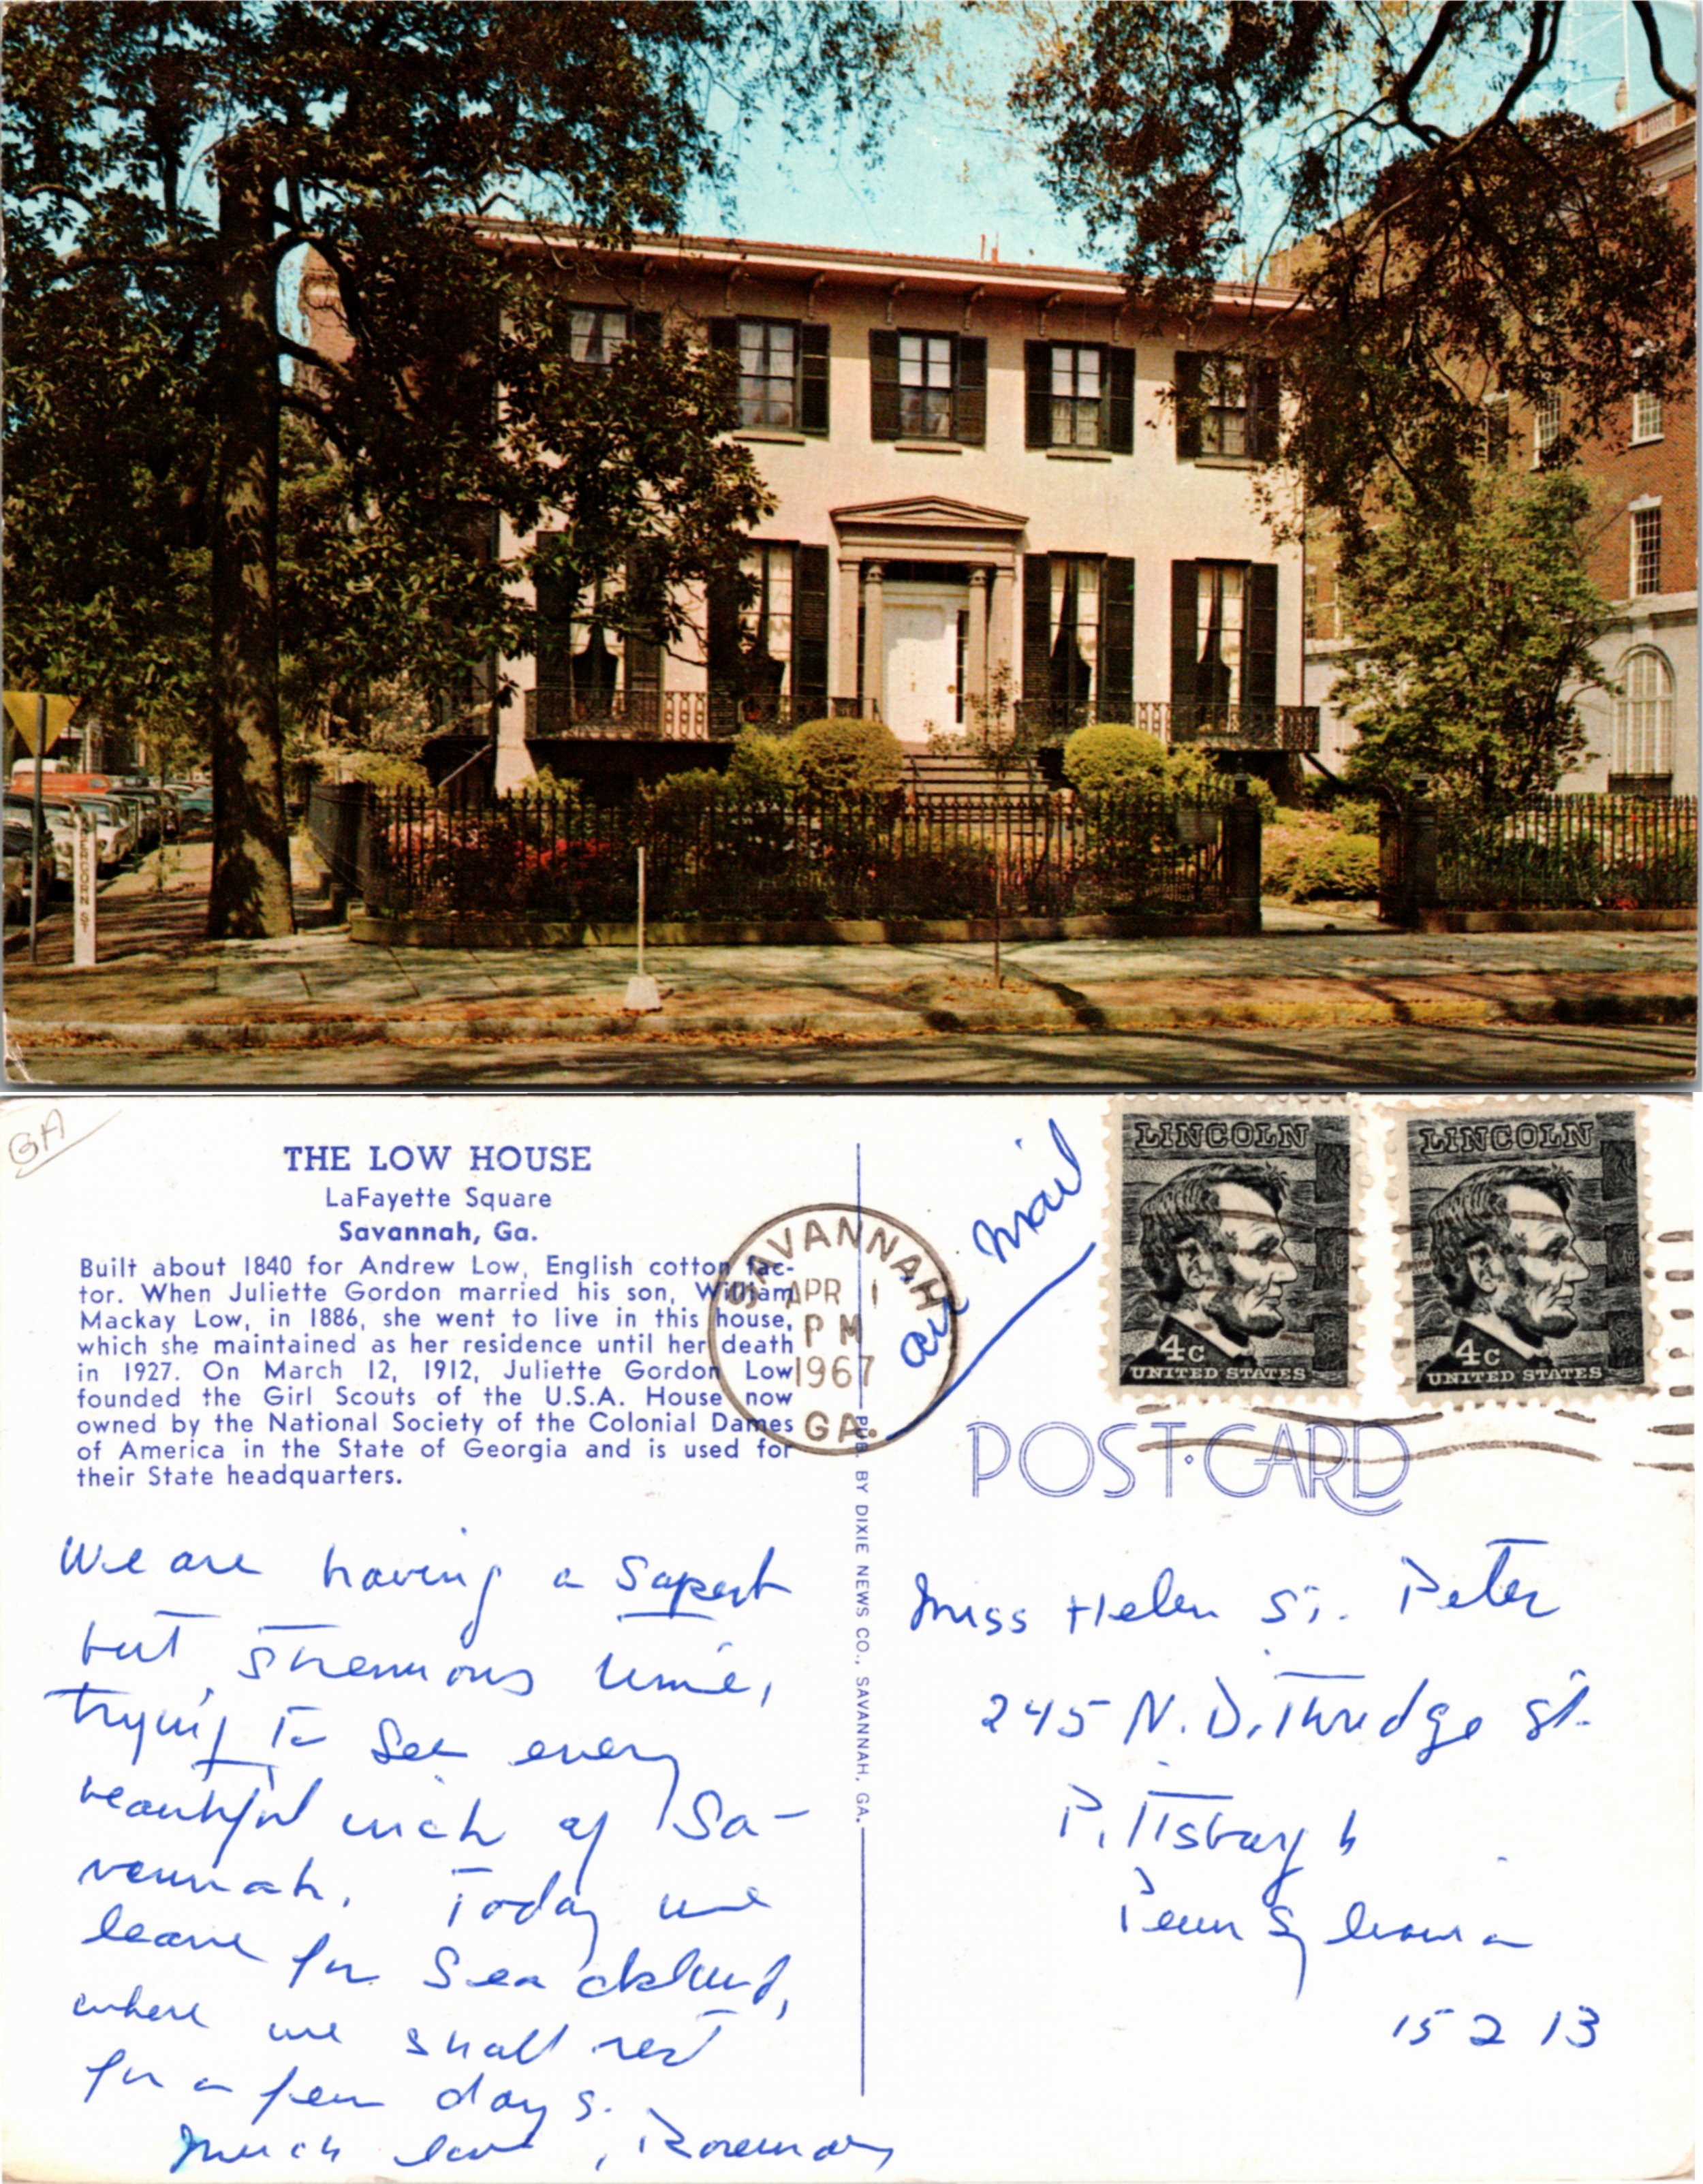 ABERCORN ST.
GA
THE LOW HOUSE
LaFayette Square
Savannah, Ga.
Built about 1840 for Andrew Low, English cotton fac-
tor. When Juliette Gordon married his son, William
Mackay Low, in 1886, she went to live in this house,
which she maintained as her residence until her death
in 1927. On March 12, 1912, Juliette Gordon Low
founded the Girl Scouts of the U.S.A. House now
owned by the National Society of the Colonial Dames
of America in the State of Georgia and is used for
their State headquarters.
We are having a superb
but strenuous time,
trying to see every
beautiful inch of Sa-
vannah. Today we
leave for Sea Island,
where we shall rest
for a few days.
Much love, Rosemary
PUB. BY DIXIE NEWS CO., SAVANNAH, GA.
SAVANNAH
APR 1
PM
1967
GA.
air mail
LINCOLN
4c
UNITED STATES
LINCOLN
4c
UNITED STATES
POST CARD
Miss Helen St. Peter
245 N. Dithridge St.
Pittsburgh
Pennsylvania
15213